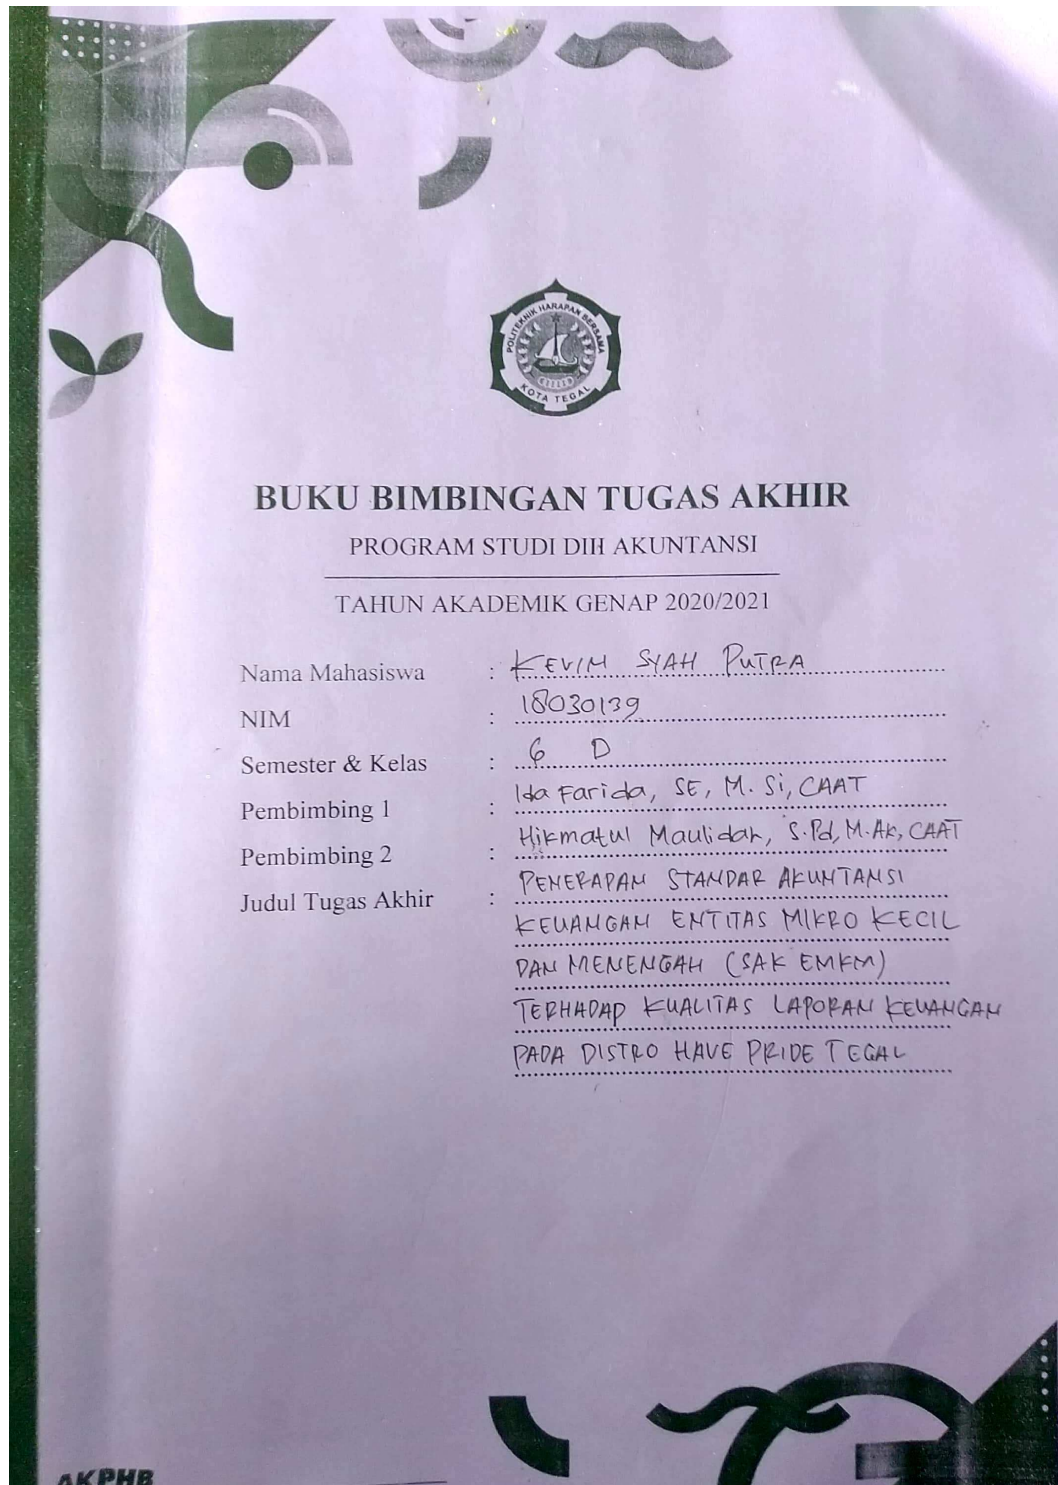 POLITEKNIK HARAPAN BERSAMA
KOTA TEGAL
BUKU BIMBINGAN TUGAS AKHIR
PROGRAM STUDI DIII AKUNTANSI
TAHUN AKADEMIK GENAP 2020/2021
Nama Mahasiswa : KEVIN SYAH PUTRA
NIM : 18030139
Semester & Kelas : 6 D
Pembimbing 1 : Ida Farida, SE, M. Si, CAAT
Pembimbing 2 : Hikmatul Maulidah, S.Pd, M.Ak, CAAT
Judul Tugas Akhir : PENERAPAN STANDAR AKUNTANSI
KEUANGAN ENTITAS MIKRO KECIL
DAN MENENGAH (SAK EMKM)
TERHADAP KUALITAS LAPORAN KEUANGAN
PADA DISTRO HAVE PRIDE TEGAL
AKPHB